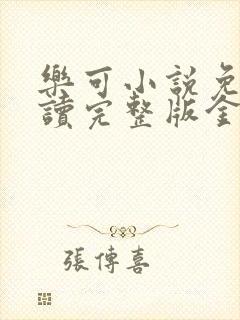 樂可小說免
讀完整版全
張傳喜